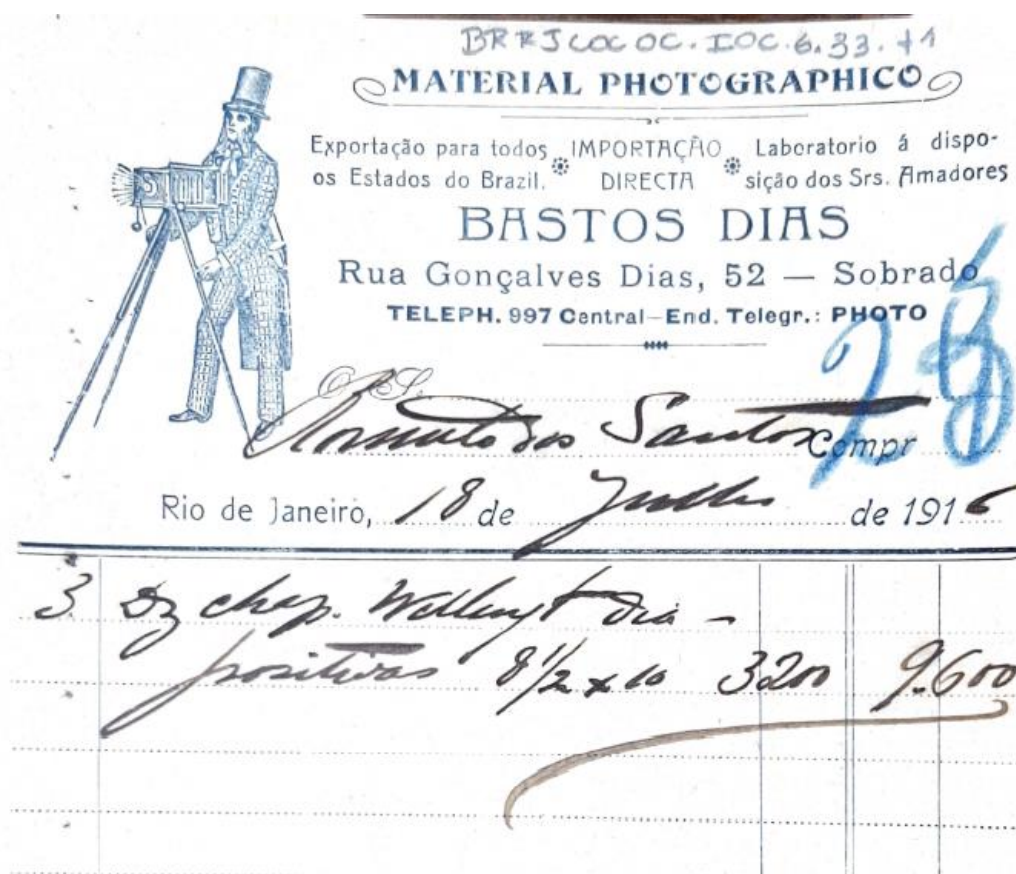 BR RJ COC OC. IOC. 6. 33. f1
MATERIAL PHOTOGRAPHICO
Exportação para todos os Estados do Brazil.
IMPORTAÇÃO DIRECTA
Laboratorio á disposição dos Srs. Amadores
BASTOS DIAS
Rua Gonçalves Dias, 52 — Sobrado
TELEPH. 997 Central—End. Telegr.: PHOTO
dos Santos Compr
Rio de Janeiro, 18 de Julho de 1916
3 Dz chap. Wellingt dia-
positivas 8 1/2 x 10 3200 9.600